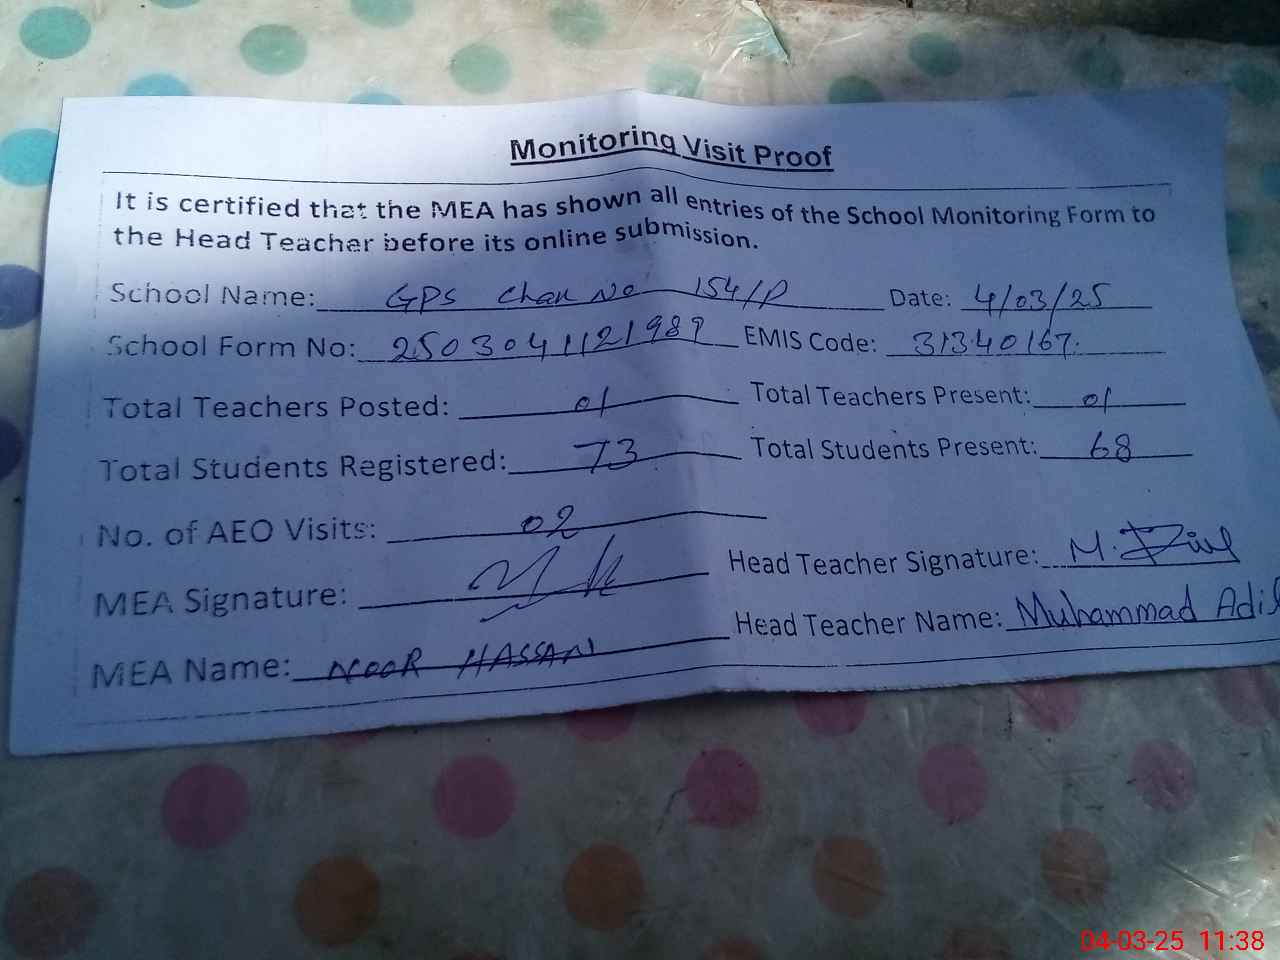 Monitoring Visit Proof
It is certified that the MEA has shown all entries of the School Monitoring Form to
the Head Teacher before its online submission.
School Name: GPS Chak No 154/P Date: 4/03/25
School Form No: 2503041121989 EMIS Code: 31340167
Total Teachers Posted: 01 Total Teachers Present: 01
Total Students Registered: 73 Total Students Present: 68
No. of AEO Visits: 02
MEA Signature: Head Teacher Signature: M.
MEA Name: NOOR HASSAN Head Teacher Name: Muhammad Adil
04-03-25 11:38